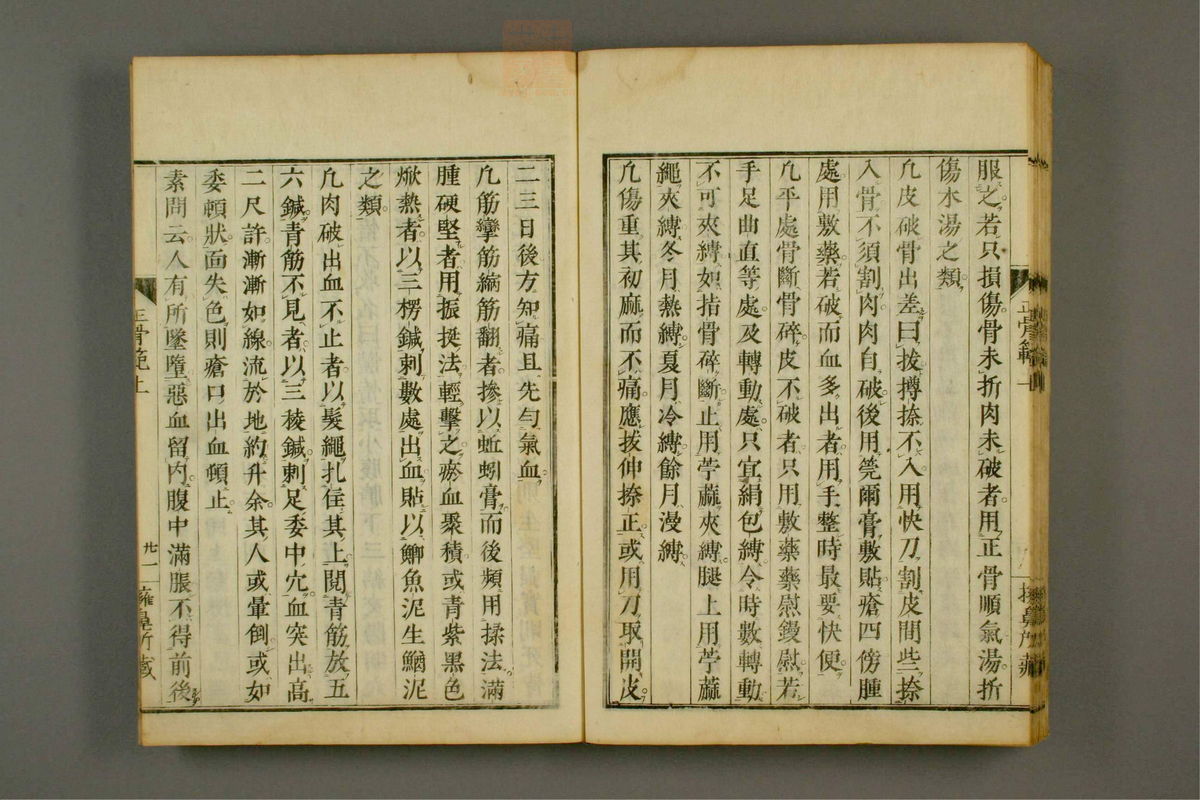 服之若只損傷骨未折肉未破者用正骨順氣湯折
傷木湯之類
凢皮破骨出差臼拔撙捺不入用快刀割皮間些捺
入骨不須割肉肉自破後用莞爾膏敷貼瘡四傍腫
處用敷藥若破而血多出者用手整時最要快便
凢平處骨斷骨碎皮不破者只用敷藥藥慰鏝慰若
手足曲直等處及轉動處只宜絹包縛令時數轉動
不可夾縛如拮骨碎斷止用苧蔴夾縛腿上用苧蔴
繩夾縛冬月熱縛夏月冷縛餘月漫縛
凢傷重其初麻而不痛應拔伸捺正或用刀取開皮
正骨範上
擁鼻所藏
二三日後方知痛且先勻氣血
凢筋攣筋縮筋翻者摻以蚯蚓膏而後頻用揉法滿
腫硬堅者用振挺法輕擊之瘀血聚積或青紫黑色
焮熱者以三楞鍼刺數處出血貼以鯽魚泥生鰌泥
之類
凢肉破出血不止者以髮繩扎住其上閱青筋放五
六鍼青筋不見者以三稜鍼刺足委中穴血突出高
二尺許漸漸如線流於地約升余其人或暈倒或如
委頓狀面失色則瘡口出血頓止
素問云人有所墜墮惡血留内腹中滿脹不得前後
正骨範上
廿一
擁鼻所藏